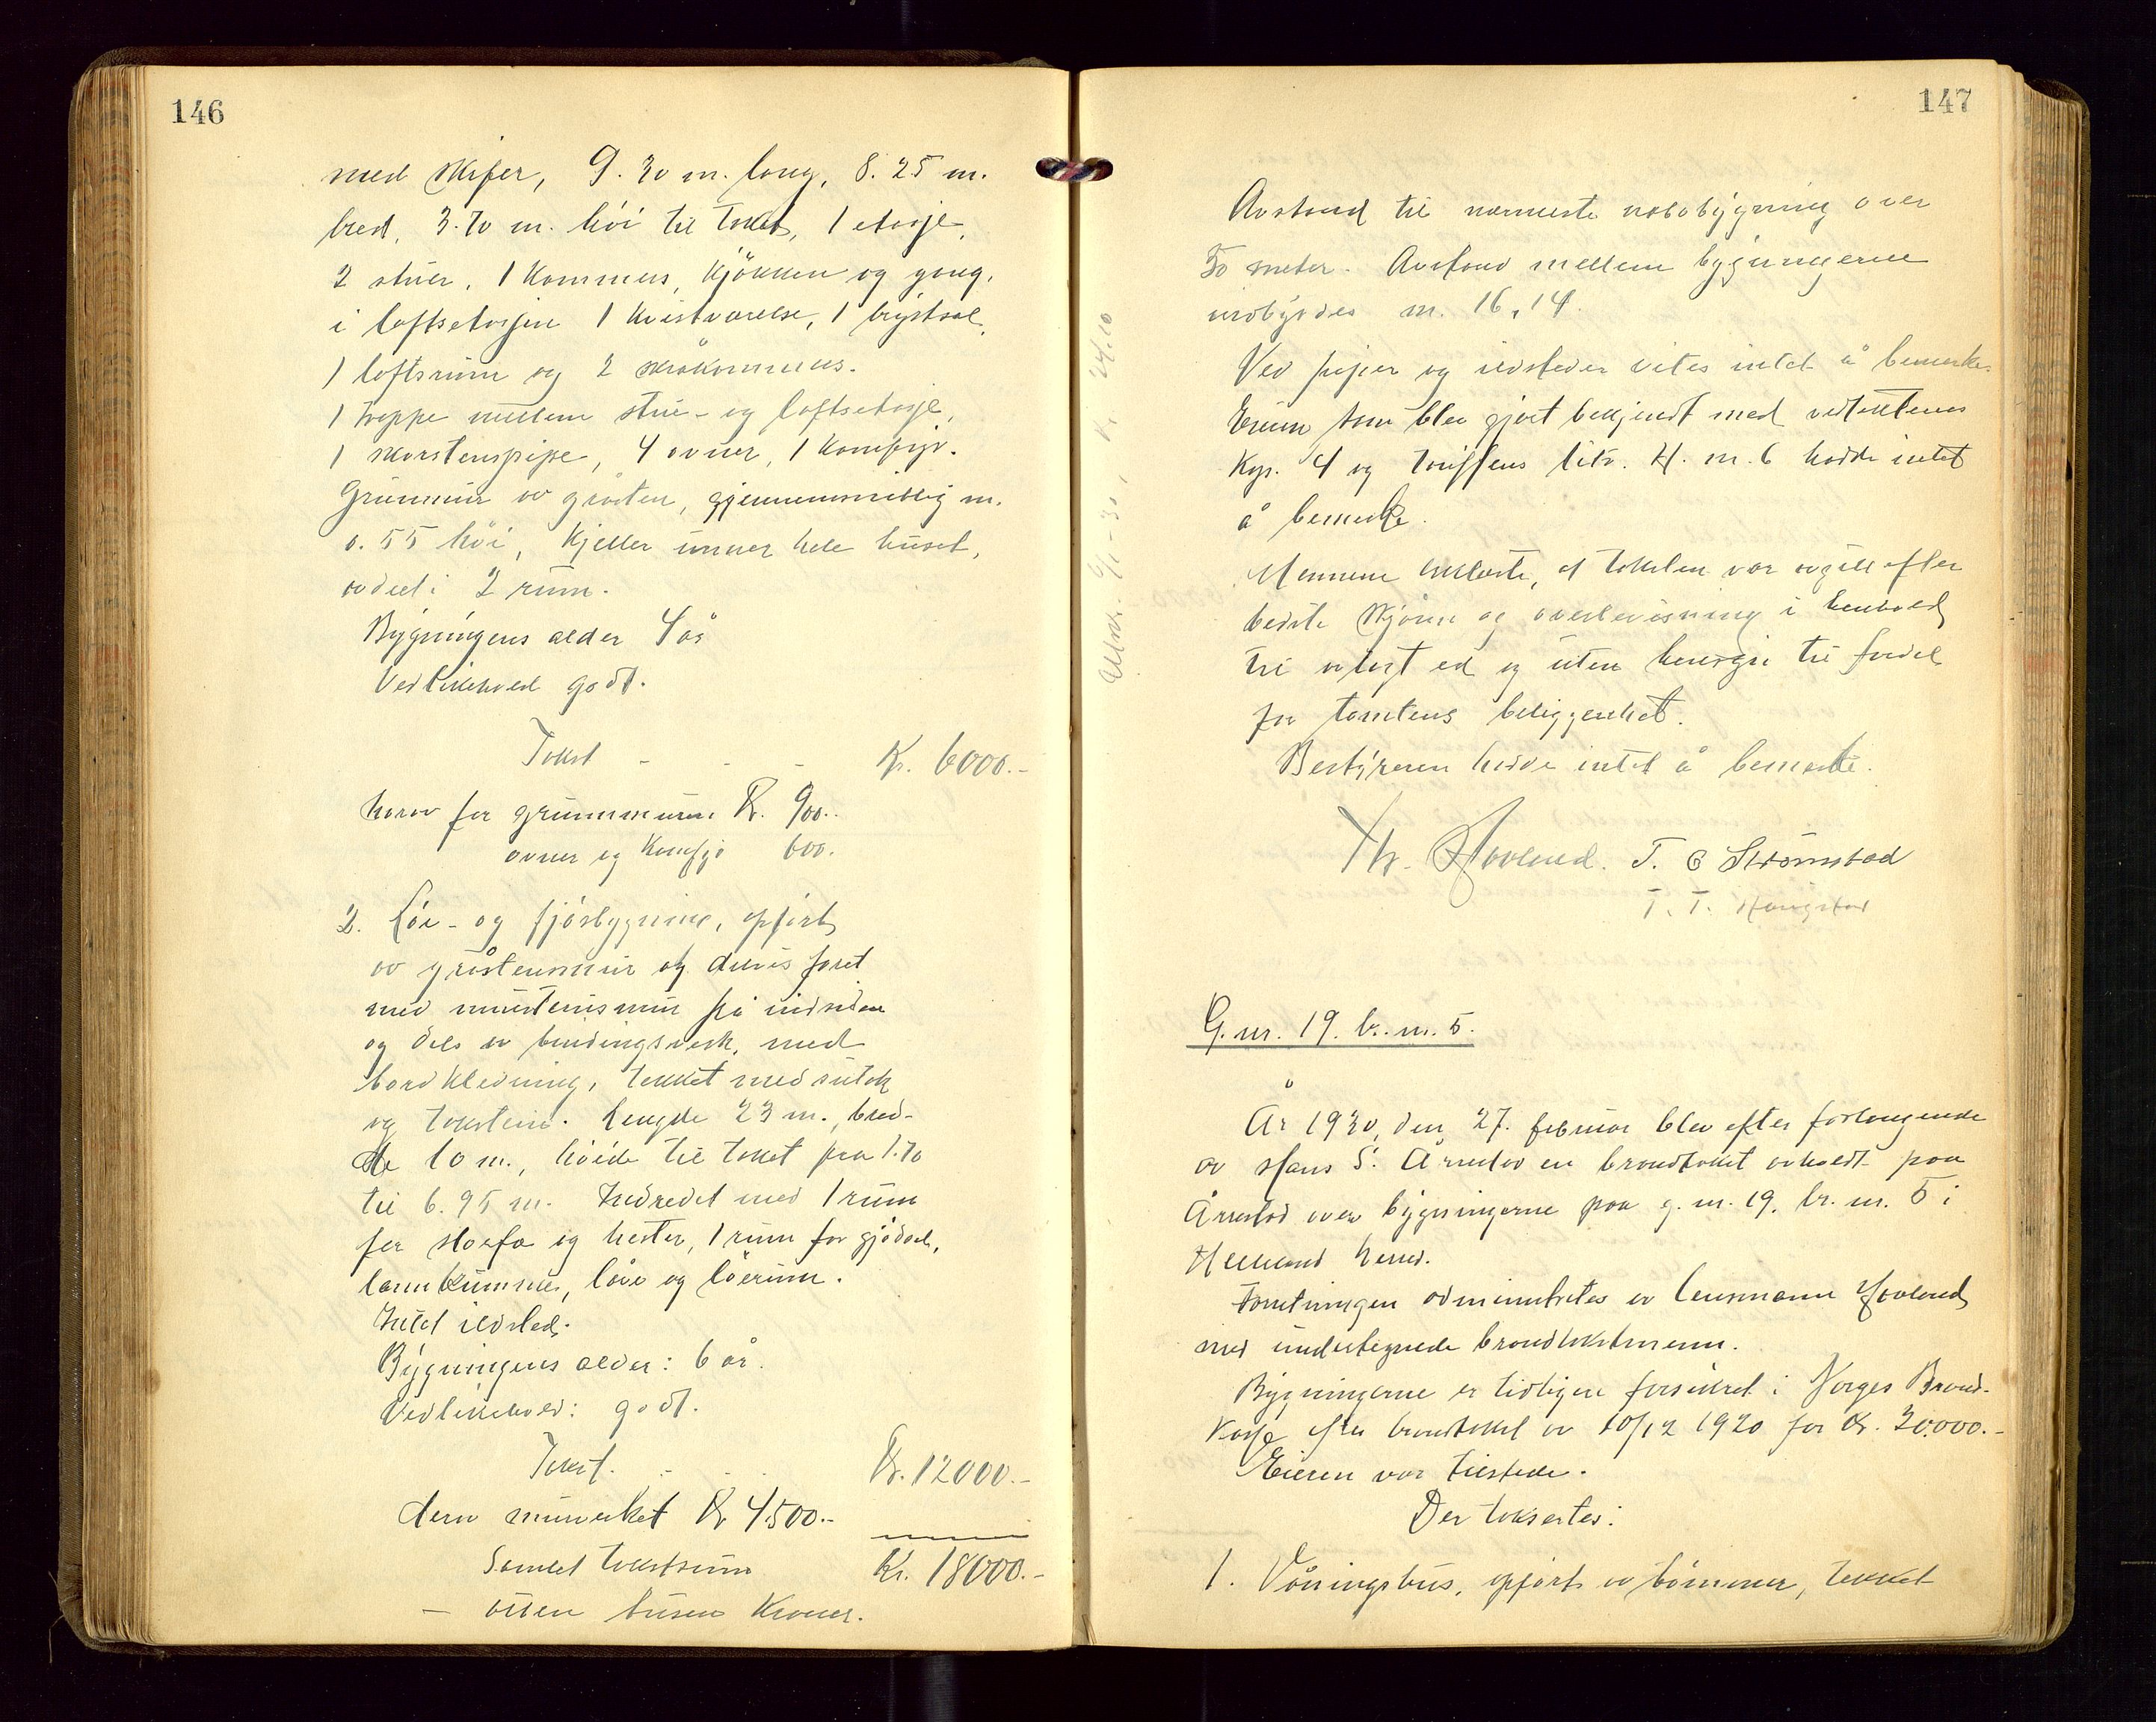 146
med skifer, 9.30 m. lang, 8.25 m.
bred, 3.70 m. høi til taket, 1 etasje,
2 stuer, 1 kammers, kjøkken og gang,
i loftsetasjen 1 kvistværelse, 1 brystsal,
1 loftsrum og 2 skråkammers.
1 trappe mellem stue- og loftsetasje,
1 skorstenspipe, 4 ovner, 1 komfyr.
Grunmur av gråsten, gjennemsnittlig m.
0.55 høi, kjeller under hele huset,
avdelt i 2 rum.
Bygningens alder 4 år
Vedlikehold godt.
Takst - - - Kr. 6000.-
herav for grunnmuren Kr. 900..
ovner og komfyr 600.
2. Løe- og fjøsbygning, opført
av gråstensmur og delvis foret
med murstensmur på indsiden
og dels av bindingsverk, med
bordkledning, tekket med sutak
og takstein. Lengde 23 m., bred-
de 10 m., høide til taket fra 1.70
til 6.95 m. Indredet med 1 rum
for storfæ og hester, 1 rum for gjødsel,
landkummer, låve og løerum.
Intet ildsted.
Bygningens alder: 6 år.
Vedlikehold: godt.
Takst. - - - Kr. 12000.-
derav murverket Kr 4500.-
Samlet takstsum Kr. 18000.-
- atten tusen kroner.
147
Avstand til nærmeste nabobygning over
50 meter. Avstand mellem bygningerne
innbyrdes m. 16,14.
Ved piper og ildsteder vites intet å bemerke.
Eieren som blev gjort bekjendt med vedtektenes
kap. 4 og tariffens litr. H. nr. 6 hadde intet
å bemerke.
Mennene erklærte, at taksten var avgitt efter
bedste skjønn og overbevisning i henhold
til avlagt ed og uten hensyn til fordel
for tomtens beliggenhet.
Bestyreren hadde intet å bemerke.
Th. Hovland. T. C Strømstad
T. T.
G.nr. 19. br. nr. 5.
År 1930, den 27. februar blev efter forlangende
av Hans S. Årrestad en brandtakst avholdt paa
Årrestad over bygningerne paa g. nr. 19, br. nr. 5 i
Helleland herred.
Forretningen administrertes av lensmann Hovland
med undertegnede brandtakstmenn.
Bygningerne er tidligere forsikret i Norges Brand-
kasse efter brandtakst av 10/12 1920 for kr. 30.000.-
Eieren var tilstede.
Der taksertes:
1. Våningshus, opført av tømmer, tekket